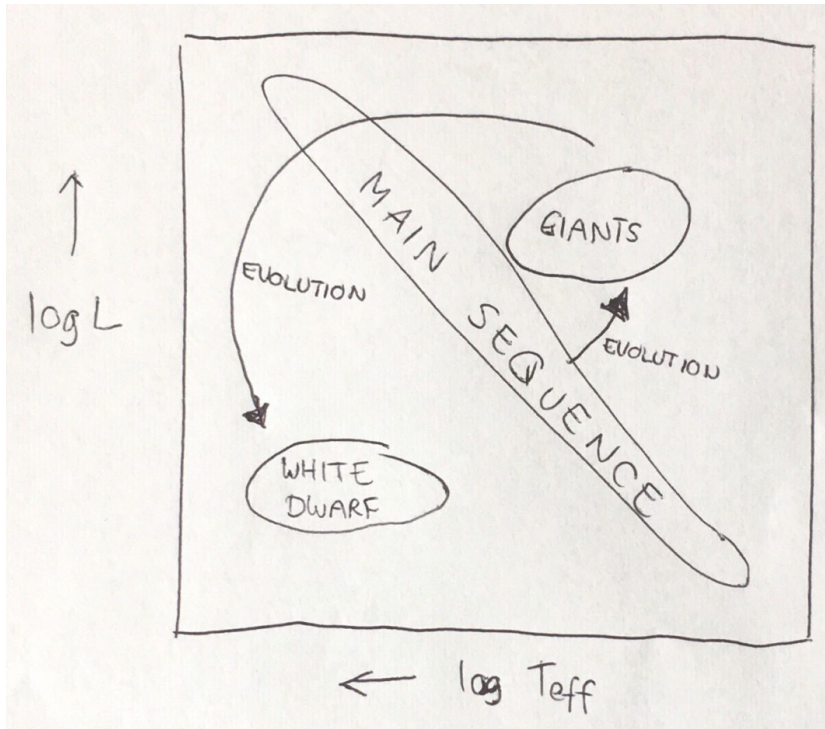 MAIN SEQUENCE
GIANTS
EVOLUTION
EVOLUTION
log L
WHITE
DWARF
log Teff